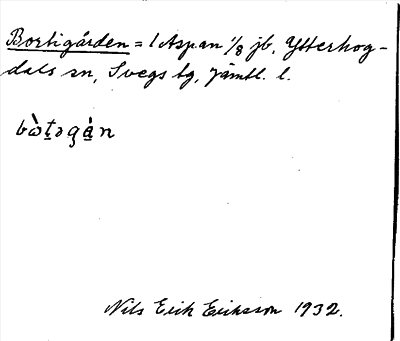 Bortigården = 1 Aspan 1/8 jb, Ytterhog-
dals sn, Svegs tg, Jämtl. l.
bὼt̠əgá̠n
Nils Erik Eriksson 1932.